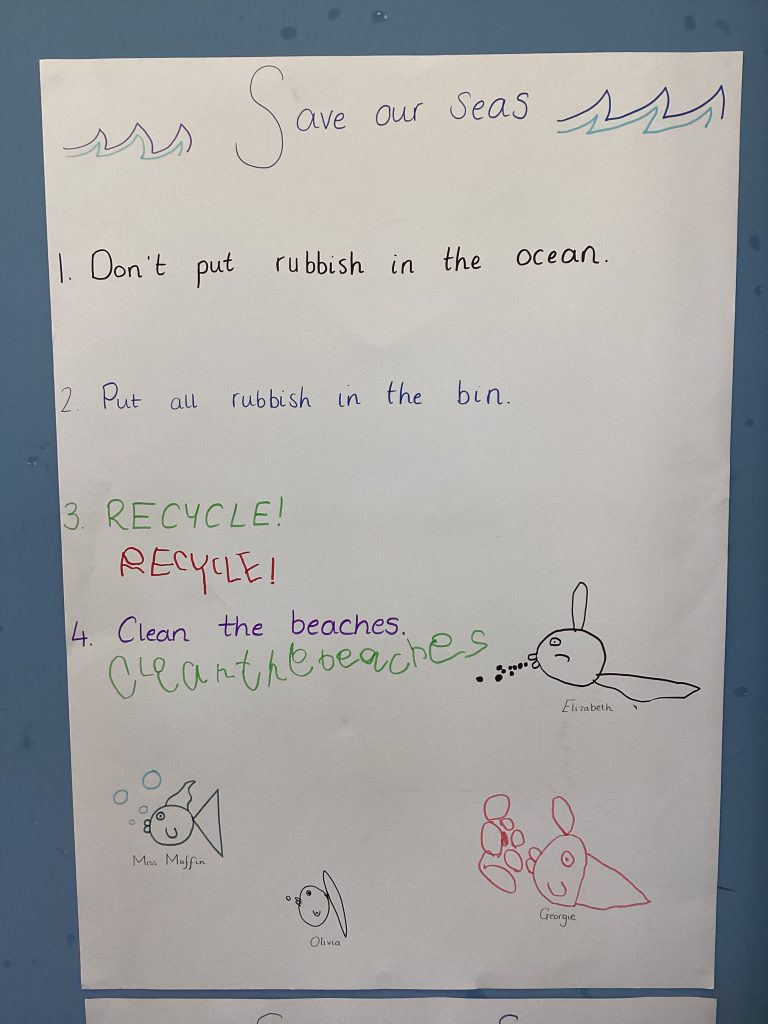 Save our seas
1. Don't put rubbish in the ocean.
2. Put all rubbish in the bin.
3. RECYCLE!
RECYCLE!
4. Clean the beaches.
Clean the beaches
Elizabeth
Miss Maffin
Georgie
Olivia